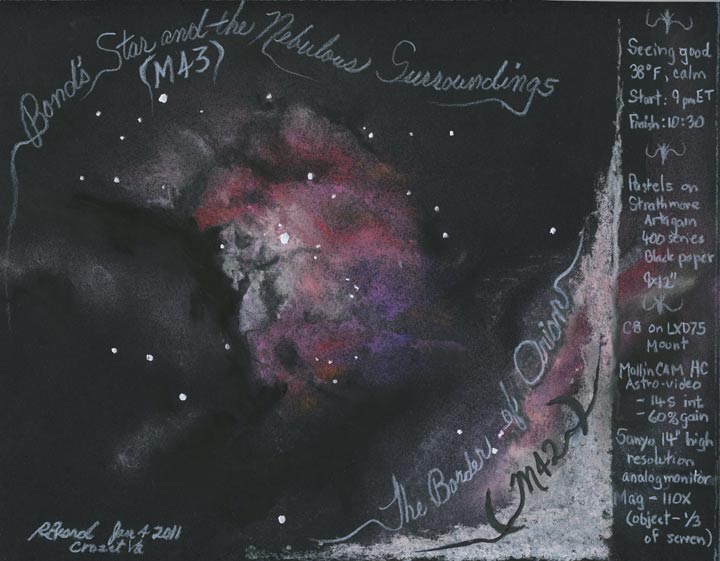 Bond's Star and the Nebulous Surroundings
(M43)
The Border of Orion
M42
Jan 4 2011
Crozet Va
Seeing good
38°F, calm
Start: 9 pm ET
Finish: 10:30
Pastels on
Strathmore
Artagain
400 series
Black paper
9x12"
C8 on LXD75
Mount
MallinCAM HC
Astro-video
- 14S int
- 60% gain
Sanyo 14" high
resolution
analog monitor
Mag - 110X
(object - 1/3
of screen)